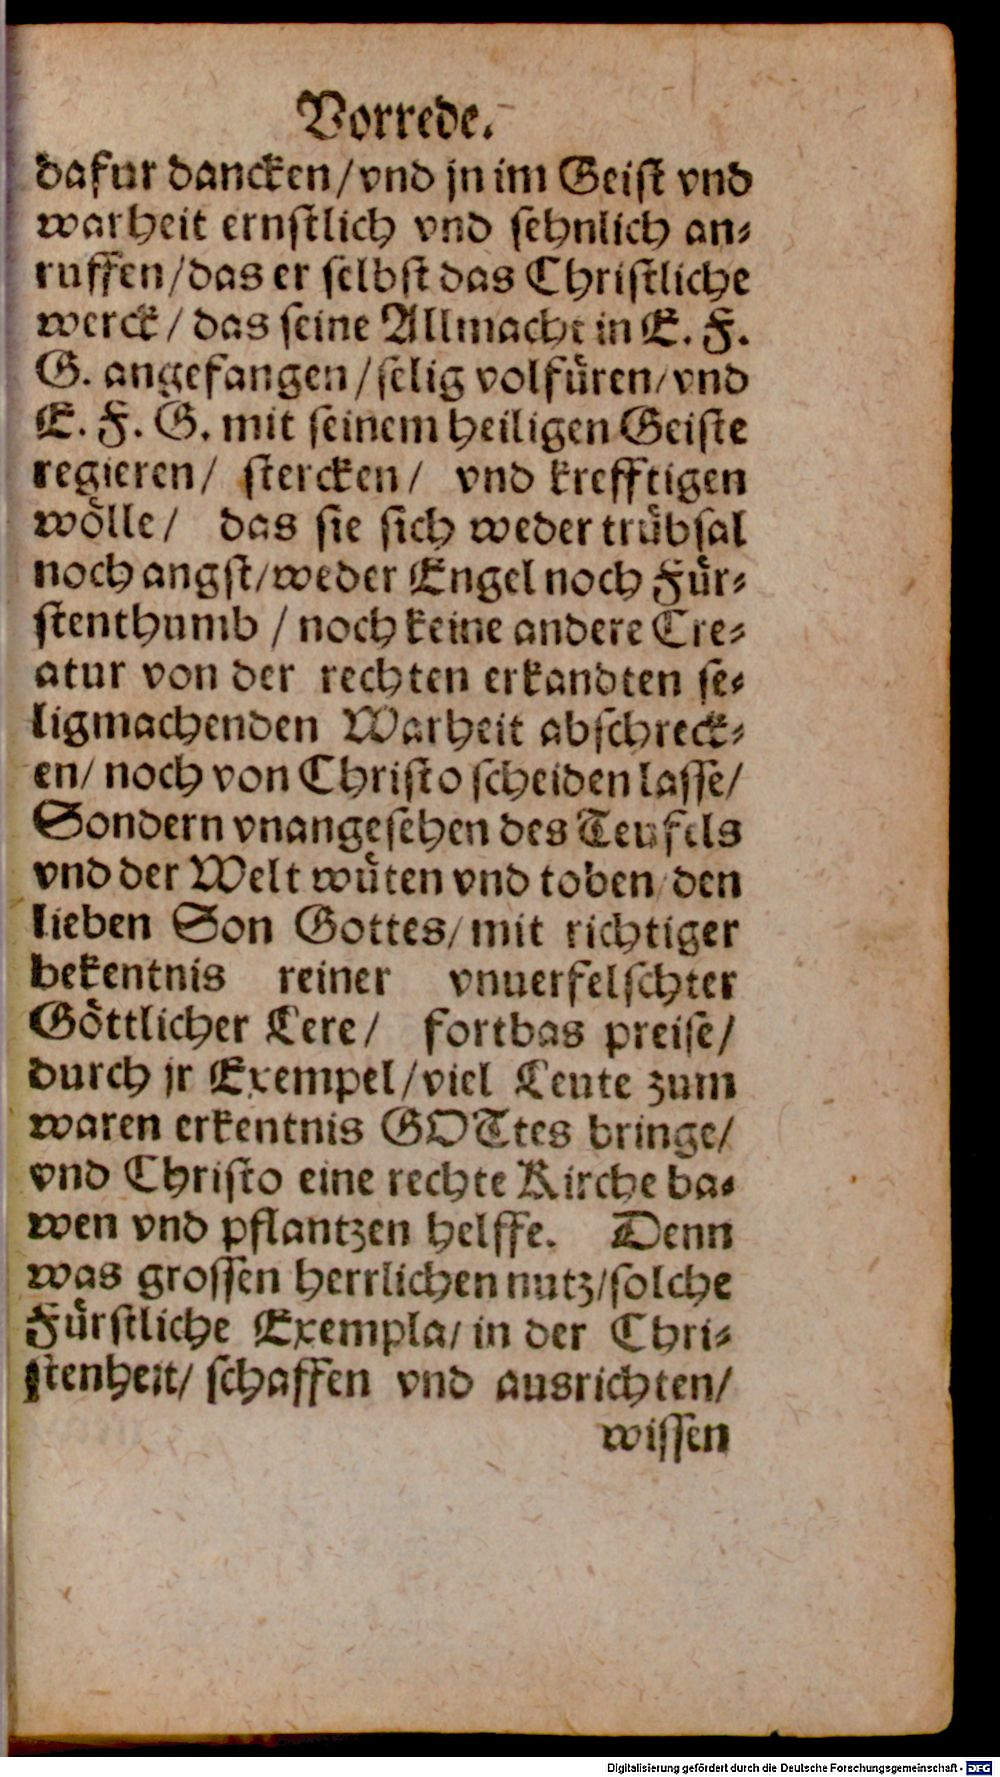 Vorrede.
dafur dancken/vnd jn im Geiſt vnd
warheit ernſtlich vnd ſehnlich an⸗
ruffen/das er ſelbſt das Chriſtliche
werck/ das ſeine Allmacht in E. F.
G. angefangen/ſelig volfuͤren/vnd
E. F. G. mit ſeinem heiligen Geiſte
regieren/ ſtercken/ vnd krefftigen
woͤlle/ das ſie ſich weder truͤbſal
noch angſt/weder Engel noch Fuͤr⸗
ſtenthumb/noch keine andere Cre⸗
atur von der rechten erkandten ſe⸗
ligmachenden Warheit abſchreck⸗
en/ noch von Chriſto ſcheiden laſſe/
Sondern vnangeſehen des Teufels
vnd der Welt wuͤten vnd toben/den
lieben Son Gottes/mit richtiger
bekentnis reiner vnuerfelſchter
Goͤttlicher Lere/ fortbas preiſe/
durch jr Exempel/viel Leute zum
waren erkentnis GOTtes bringe/
vnd Chriſto eine rechte Kirche ba⸗
wen vnd pflantzen helffe. Denn
was groſſen herrlichen nutz/ſolche
Fuͤrſtliche Exempla/ in der Chri⸗
ſtenheit/ ſchaffen vnd ausrichten/
wiſſen
Digitalisierung gefördert durch die Deutsche Forschungsgemeinschaft - DFG